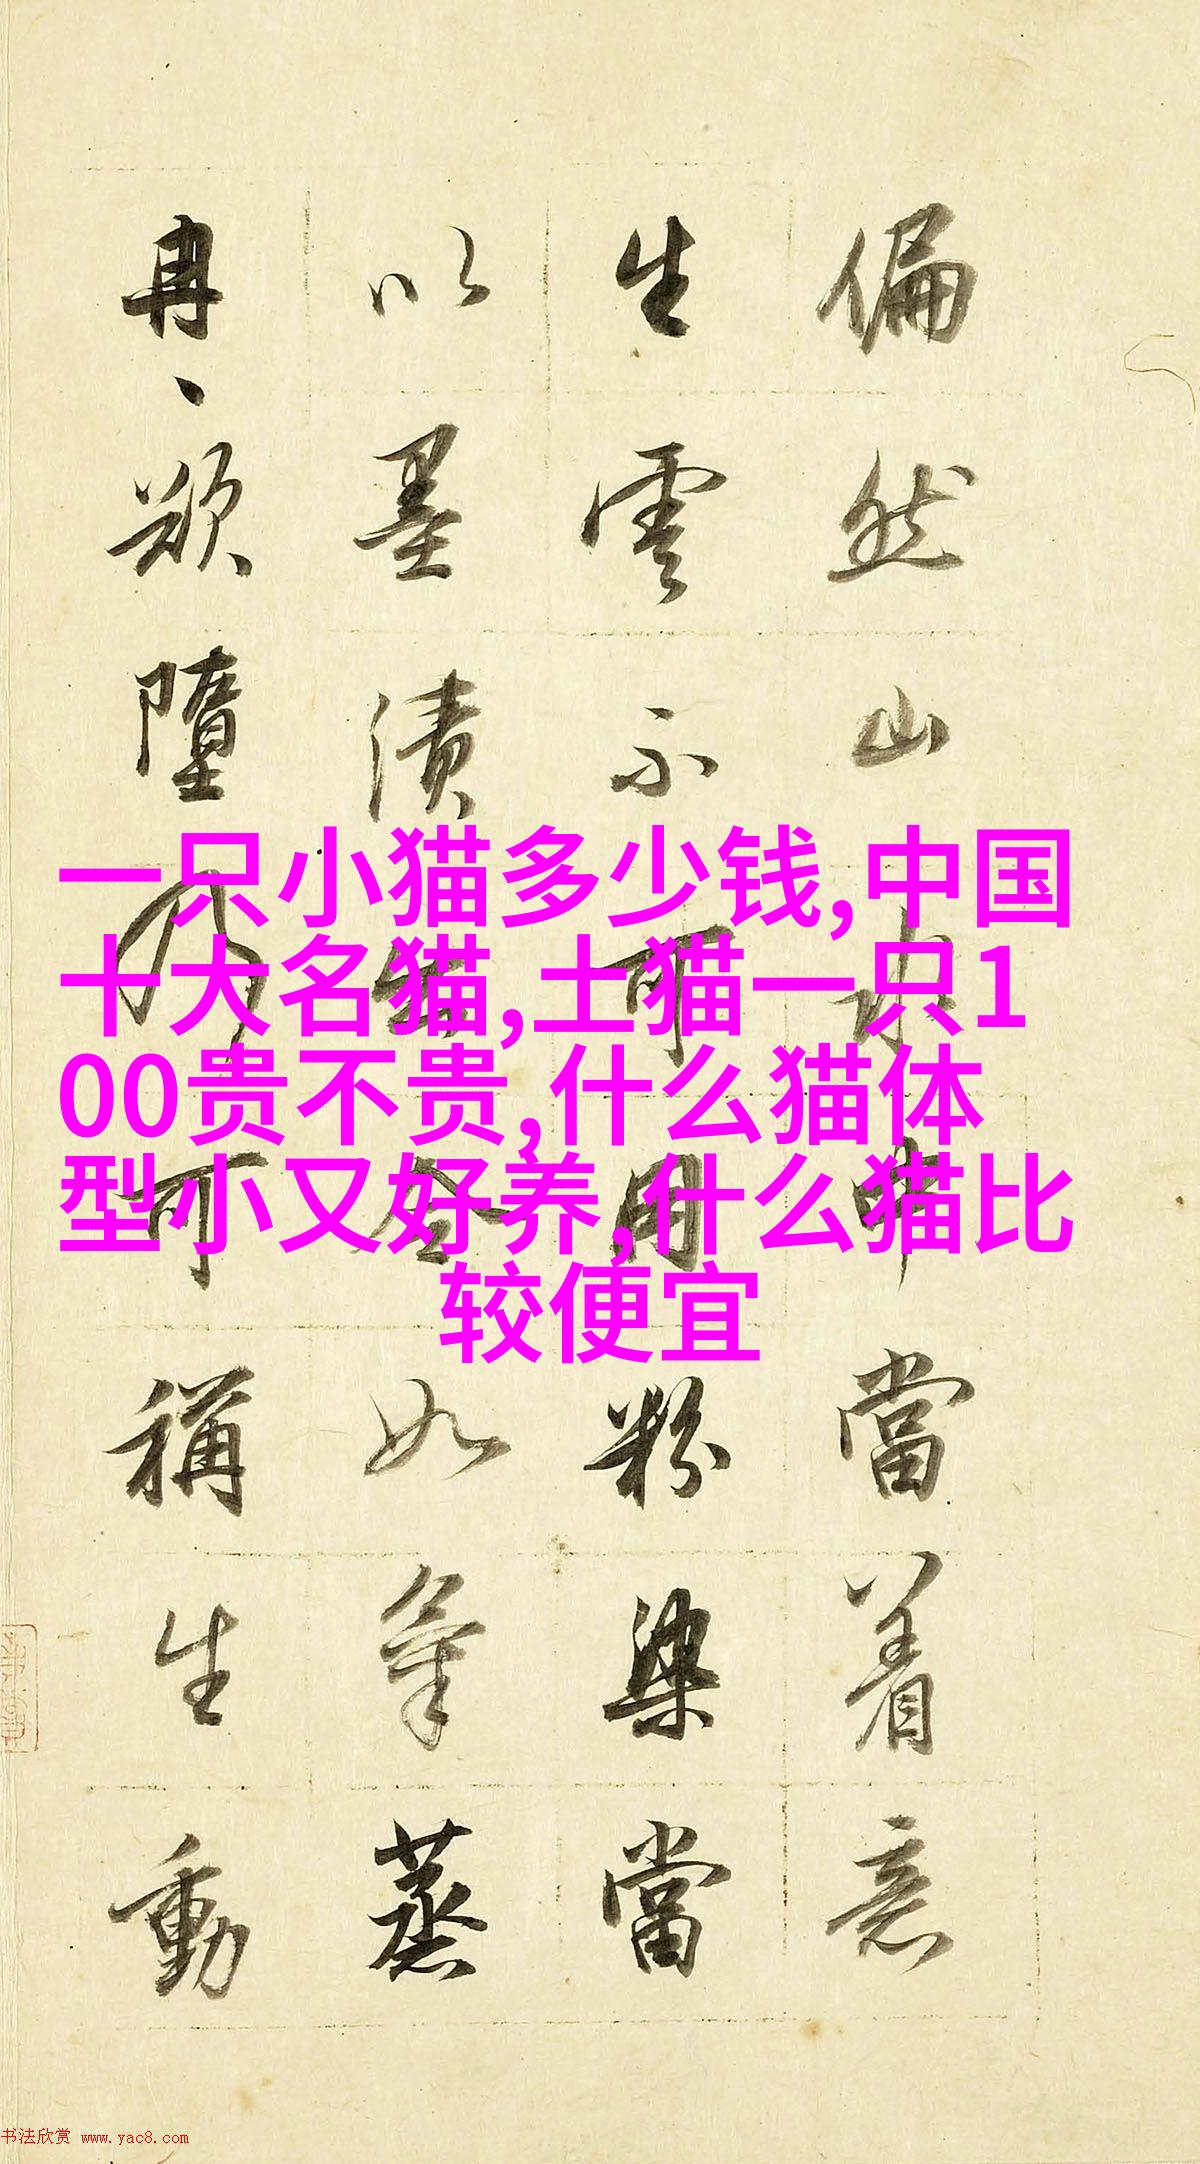 一只小猫多少钱,中国
十大名猫,土猫一只1
00贵不贵,什么猫体
型小又好养,什么猫比
较便宜
偏然山水中當着意
生雲不可用粉染當
以墨漬出令如氣蒸
冉、欲墮乃可稱生動
书法欣赏 www.yac8.com